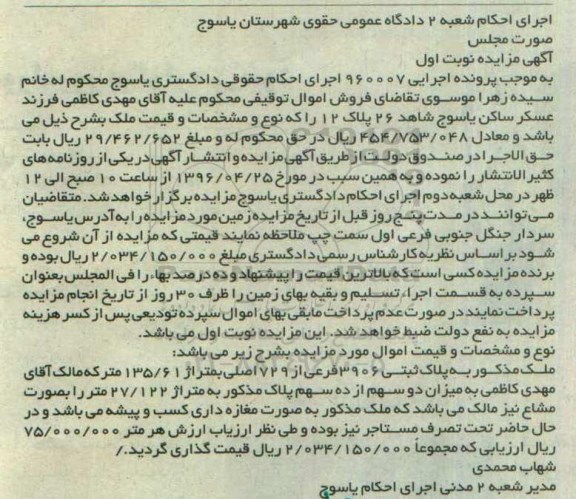 اجرای احکام شعبه ۲ دادگاه عمومی حقوقی شهرستان یاسوج
صورت مجلس
آگهی مزایده نوبت اول
به موجب پرونده اجرایی ۹۶۰۰۰۷ اجرای احکام حقوقی دادگستری یاسوج محکوم له خانم
سیده زهرا موسوی تقاضای فروش اموال توقیفی محکوم علیه آقای مهدی کاظمی فرزند
عسکر ساکن یاسوج شاهد ۲۶ پلاک ۱۲ را که نوع و مشخصات و قیمت ملک بشرح ذیل می
باشد و معادل ۴۵۴/۷۵۳/۰۴۸ ریال در حق محکوم له و مبلغ ۲۹/۴۶۲/۶۵۲ ریال بابت
حق الاجرا در صندوق دولت از طریق آگهی مزایده و انتشار آگهی در یکی از روزنامه های
کثیر الانتشار را نموده و به همین سبب در مورخ ۱۳۹۶/۰۴/۲۵ از ساعت ۱۰ صبح الی ۱۲
ظهر در محل شعبه دوم اجرای احکام دادگستری یاسوج مزایده برگزار خواهد شد. متقاضیان
می توانند در مدت پنج روز قبل از تاریخ مزایده زمین مورد مزایده را به آدرس یاسوج،
سردار جنگل جنوبی فرعی اول سمت چپ ملاحظه نمایند قیمتی که مزایده از آن شروع می
شود بر اساس نظریه کارشناس رسمی دادگستری مبلغ ۲/۰۳۴/۱۵۰/۰۰۰ ریال بوده و
برنده مزایده کسی است که بالاترین قیمت را پیشنهاد و ده درصد بهاء را فی المجلس بعنوان
سپرده به قسمت اجراء تسلیم و بقیه بهای زمین را ظرف ۳۰ روز از تاریخ انجام مزایده
پرداخت نمایند در صورت عدم پرداخت مابقی بهای اموال سپرده تودیعی پس از کسر هزینه
مزایده به نفع دولت ضبط خواهد شد. این مزایده نوبت اول می باشد.
نوع و مشخصات و قیمت اموال مورد مزایده بشرح زیر می باشد:
ملک مذکور به پلاک ثبتی ۳۹۰۶ فرعی از ۷۲۹ اصلی بمتراژ ۱۳۵/۶۱ متر که مالک آقای
مهدی کاظمی به میزان دو سهم از ده سهم پلاک مذکور به متراژ ۲۷/۱۲۲ متر را بصورت
مشاع نیز مالک می باشد که ملک مذکور به صورت مغازه داری کسب و پیشه می باشد و در
حال حاضر تحت تصرف مستاجر نیز بوده و طی نظر ارزیاب ارزش هر متر ۷۵/۰۰۰/۰۰۰
ریال ارزیابی که مجموعاً ۲/۰۳۴/۱۵۰/۰۰۰ ریال قیمت گذاری گردید./
شهاب محمدی
مدیر شعبه ۲ مدنی اجرای احکام یاسوج